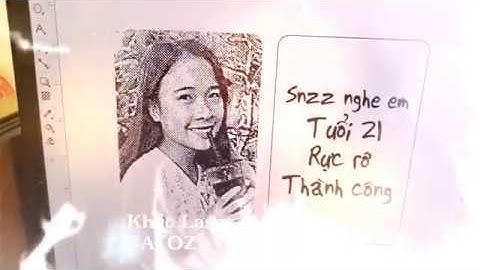 Snzz nghe em
Tuổi 21
Rực rỡ
Thành công
Khắc Laser
ATOZ